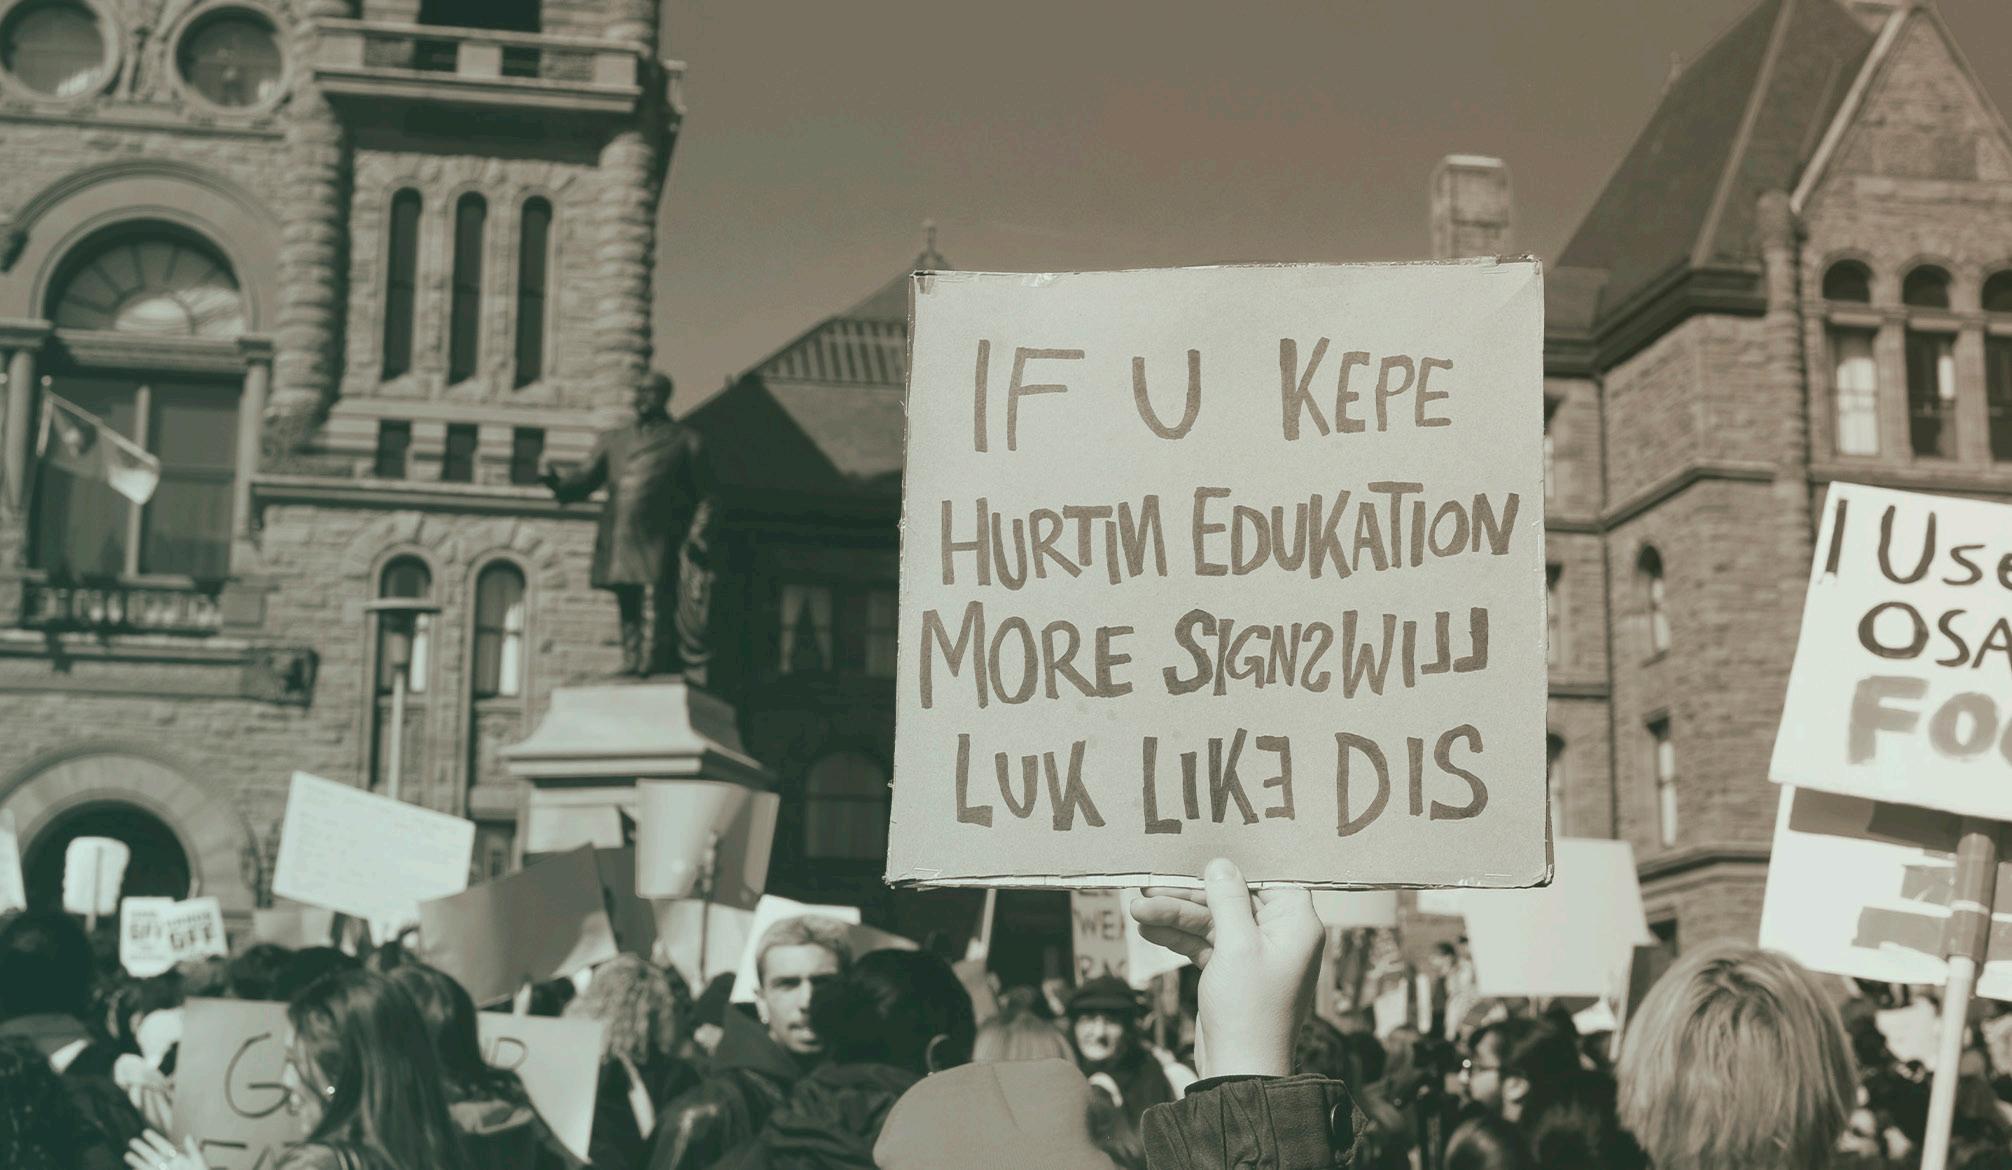 IF U KEPE
HURTIN EDUKATION
MORE SIGNS WILL
LUK LIKE DIS
I USE
OSA
FO